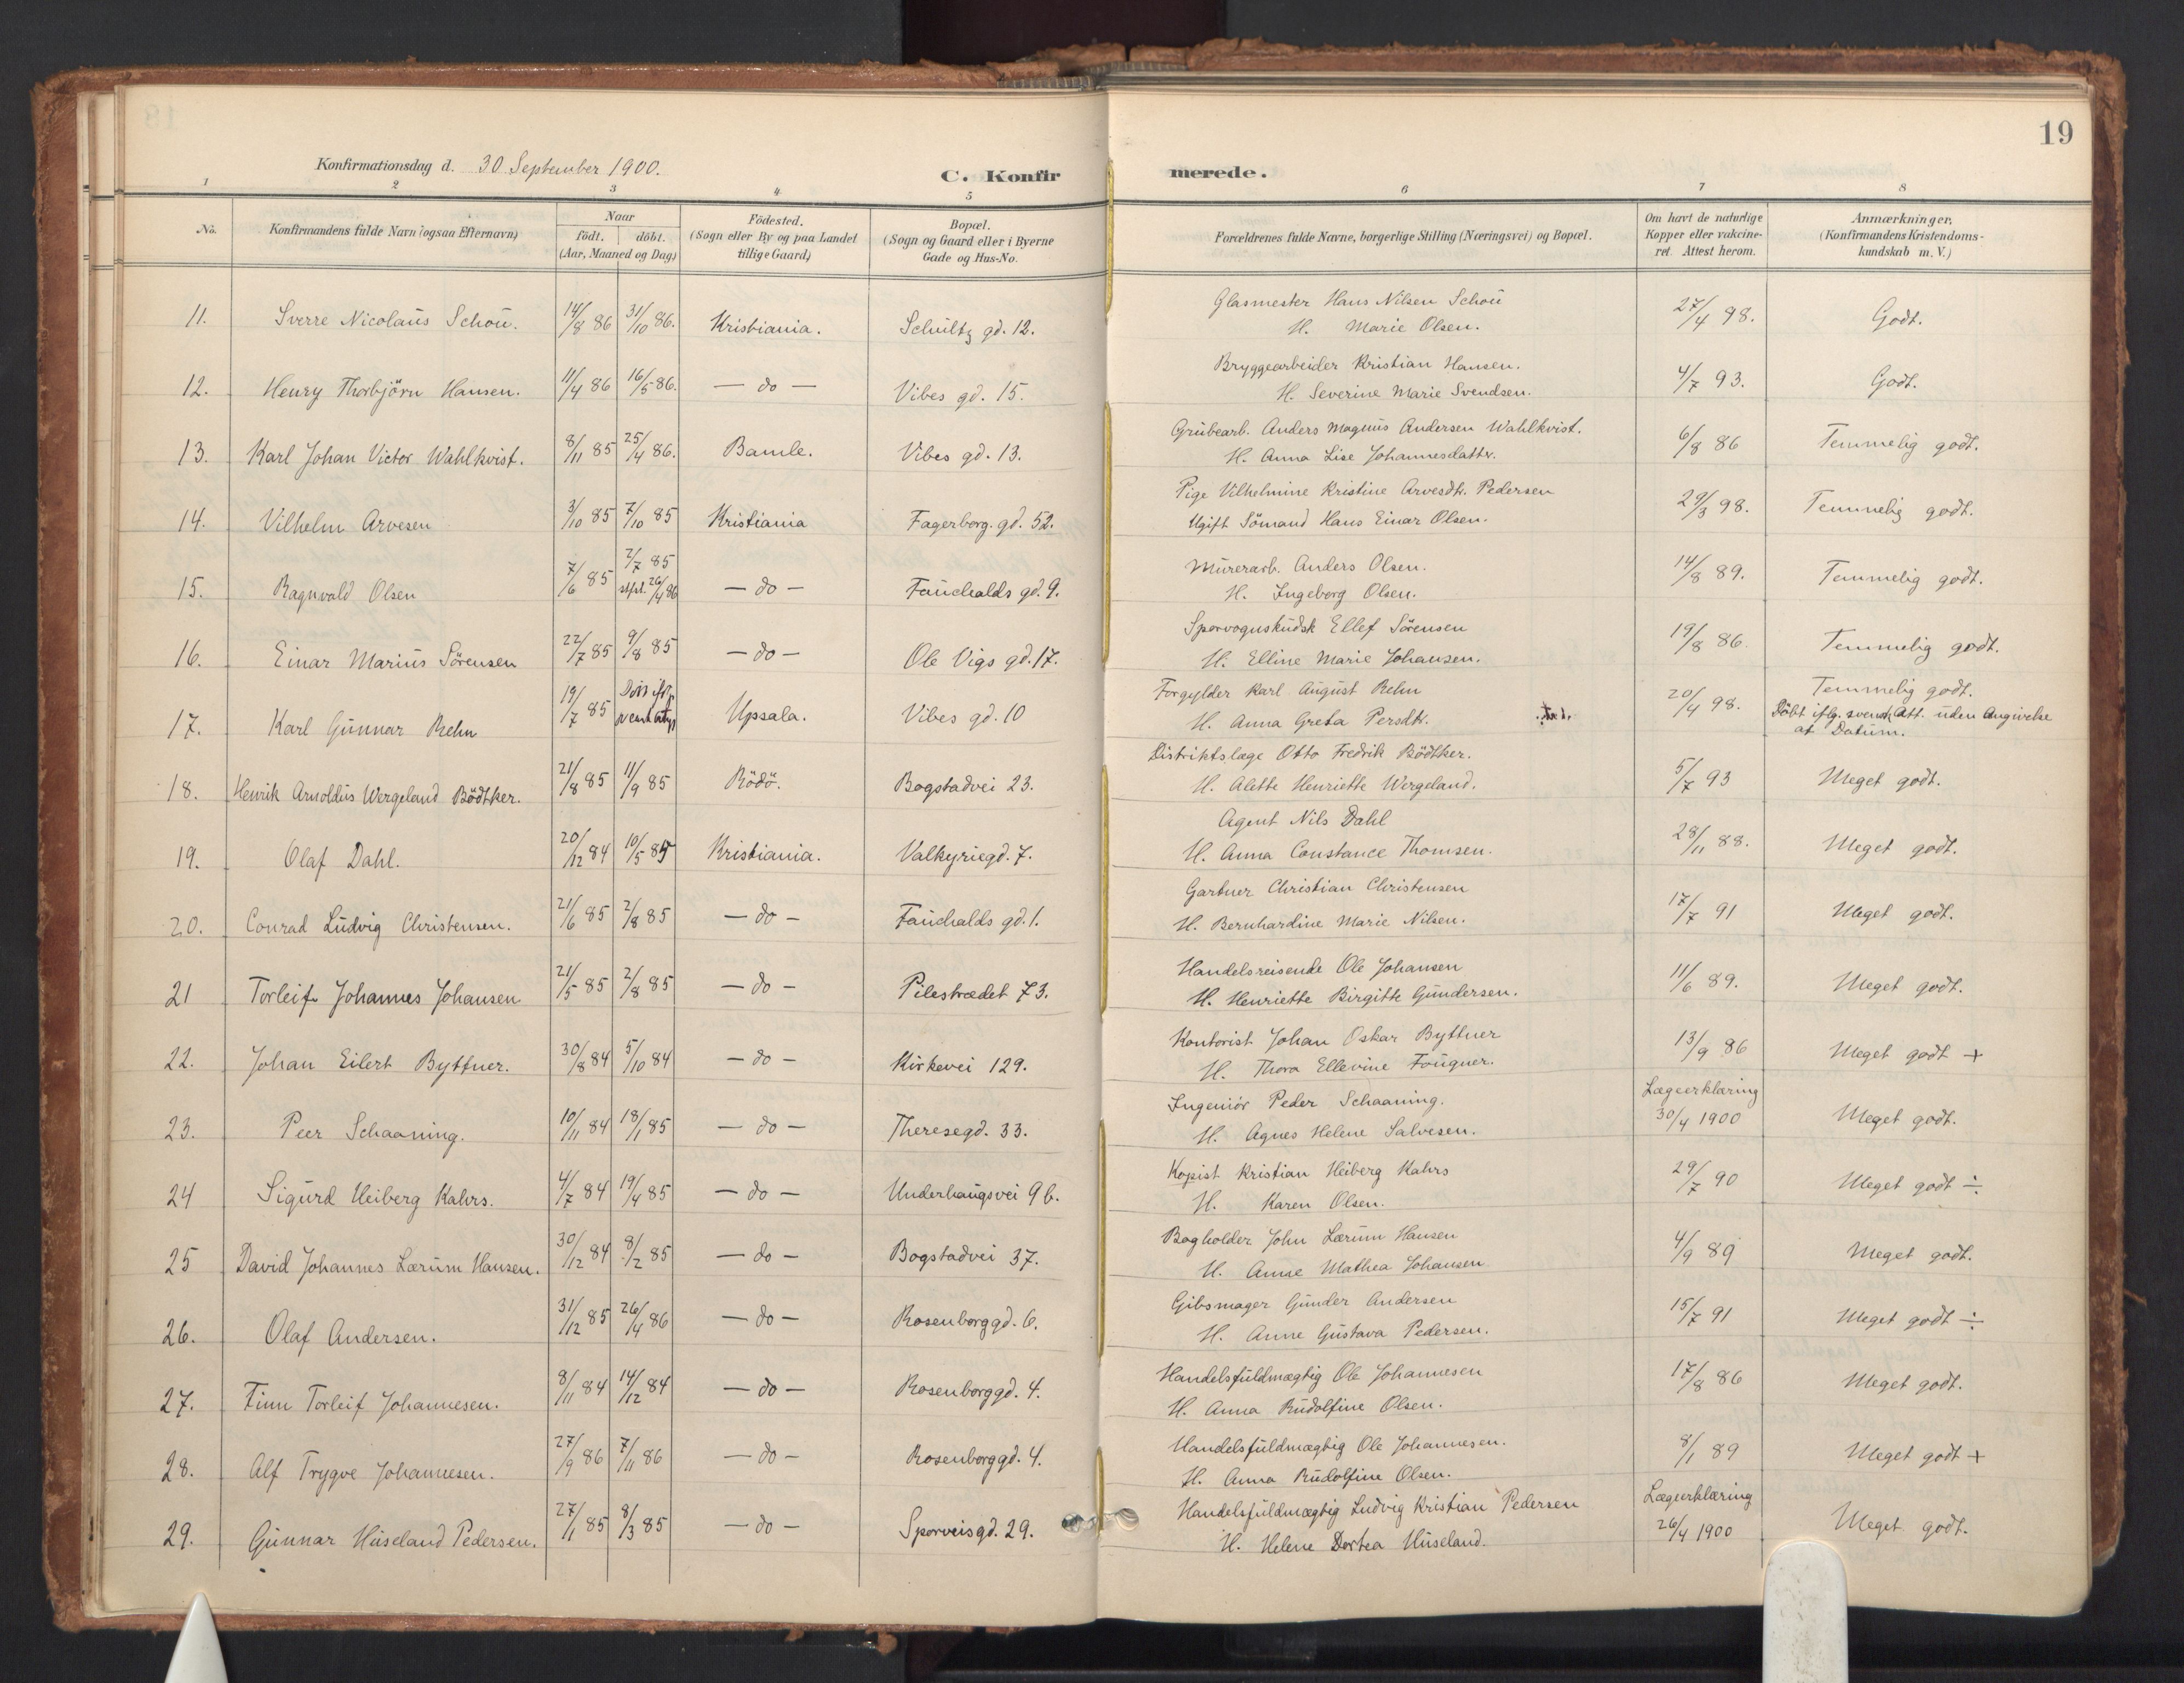 19
Konfirmationsdag d. 30 September 1900.
C. Konfirmerede.
1 2 3 4 5 6 7 8
No.
Konfirmandens fulde Navn (ogsaa Efternavn)
Naar
födt. döbt.
(Aar, Maaned og Dag)
Födested.
(Sogn eller By og paa Landet
tillige Gaard)
Bopæl.
(Sogn og Gaard eller i Byerne
Gade og Hus-No.
Forældrenes fulde Navne, borgerlige Stilling (Næringsvei) og Bopæl.
Om havt de naturlige
Kopper eller vakcine-
ret. Attest herom.
Anmærkninger,
(Konfirmandens Kristendoms-
kundskab m. V.)
11. Sverre Nicolaus Schou. 14/8 86 31/10 86. Kristiania. Schultz gd. 12. Glasmester Hans Nilsen Schou 27/4 98. Godt.
H. Marie Olsen.
12. Henry Thorbjörn Hansen. 11/4 86 16/5 86. — do — Vibes gd. 15. Bryggearbeider Kristian Hansen. 4/7 93. Godt.
H. Severine Marie Svendsen.
13. Karl Johan Victor Wahlkvist. 8/11 85 25/4 86. Bamle. Vibes gd. 13. Grubearb. Anders Magnus Andersen Wahlkvist. 6/8 86 Temmelig godt.
H. Anna Lise Johannesdatter.
14. Vilhelm Arvesen 3/10 85 7/10 85 Kristiania Fagerborg. gd. 52. Pige Vilhelmine Kristine Arvesdtr. Pedersen 29/3 98. Temmelig godt.
Ugift Sömand Hans Einar Olsen.
15. Ragnvald Olsen 7/6 85 2/7 85 — do — Fauchalds gd. 9. Murerarb. Anders Olsen. 14/8 89. Temmelig godt.
stfst. 26/4 86 H. Ingeborg Olsen.
16. Einar Marius Sörensen 22/7 85 9/8 85 — do — Ole Vigs gd. 17. Sporvognskudsk Ellef Sörensen 19/8 86 Temmelig godt.
H. Elline Marie Johansen.
17. Karl Gunnar Rehn 19/7 85 Upsala. Vibes gd. 10 Forgylder Karl August Rehn 20/4 98. Temmelig godt.
H. Anna Greta Persdtr. Döbt iflg. svensk Att. uden Angivelse
af Datum.
18. Henrik Arnoldus Wergeland Bödtker. 21/8 85 11/9 85 Rödö. Bogstadvei 23. Distriktslæge Otto Fredrik Bödtker. 5/7 93 Meget godt.
H. Alette Henriette Wergeland.
19. Olaf Dahl. 20/12 84 10/5 85 Kristiania. Valkyriegd. 7. Agent Nils Dahl 28/11 88. Meget godt.
H. Anna Constance Thomsen.
20. Conrad Ludvig Christensen. 21/6 85 2/8 85 — do — Fauchalds gd. 1. Gartner Christian Christensen 17/7 91 Meget godt.
H. Bernhardine Marie Nilsen.
21 Torleif Johannes Johansen 21/5 85 2/8 85 — do — Pilestrædet 73. Handelsreisende Ole Johansen 11/6 89. Meget godt.
H. Henriette Birgitte Gundersen.
22. Johan Eilert Byttner. 30/8 84 5/10 84 — do — Kirkevei 129. Kontorist Johan Oskar Byttner 13/9 86 Meget godt +
H. Thora Ellevine Fougner.
23. Peer Schaaning. 10/11 84 18/1 85 — do — Theresegd. 33. Ingeniör Peder Schaaning. Lægeerklæring 30/4 1900 Meget godt.
H. Agnes Helene Salvesen.
24 Sigurd Heiberg Kahrs. 4/7 84 19/4 85 — do — Underhaugsvei 9 b. Kopist Kristian Heiberg Kahrs 29/7 90 Meget godt ÷
H. Karen Olsen.
25 David Johannes Lærum Hansen. 30/12 84 8/2 85 — do — Bogstadvei 37. Bogholder John Lærum Hansen 4/9 89 Meget godt.
H. Anne Mathea Johansen
26. Olaf Andersen. 31/12 85 26/4 86 — do — Rosenborggd. 6. Gibsmager Gunder Andersen 15/7 91 Meget godt ÷
H. Anne Gustava Pedersen.
27. Finn Torleif Johannesen. 8/11 84 14/12 84 — do — Rosenborggd. 4. Handelsfuldmægtig Ole Johannesen 17/8 86 Meget godt.
H. Anna Rudolfine Olsen.
28. Alf Trygve Johannesen. 27/9 86 7/11 86 — do — Rosenborggd. 4. Handelsfuldmægtig Ole Johannesen. 8/1 89 Meget godt +
H. Anna Rudolfine Olsen.
29. Gunnar Huseland Pedersen. 27/1 85 8/3 85 — do — Sporveisgd. 29. Handelsfuldmægtig Ludvig Kristian Pedersen Lægeerklæring 26/4 1900 Meget godt.
H. Helene Dortea Huseland.